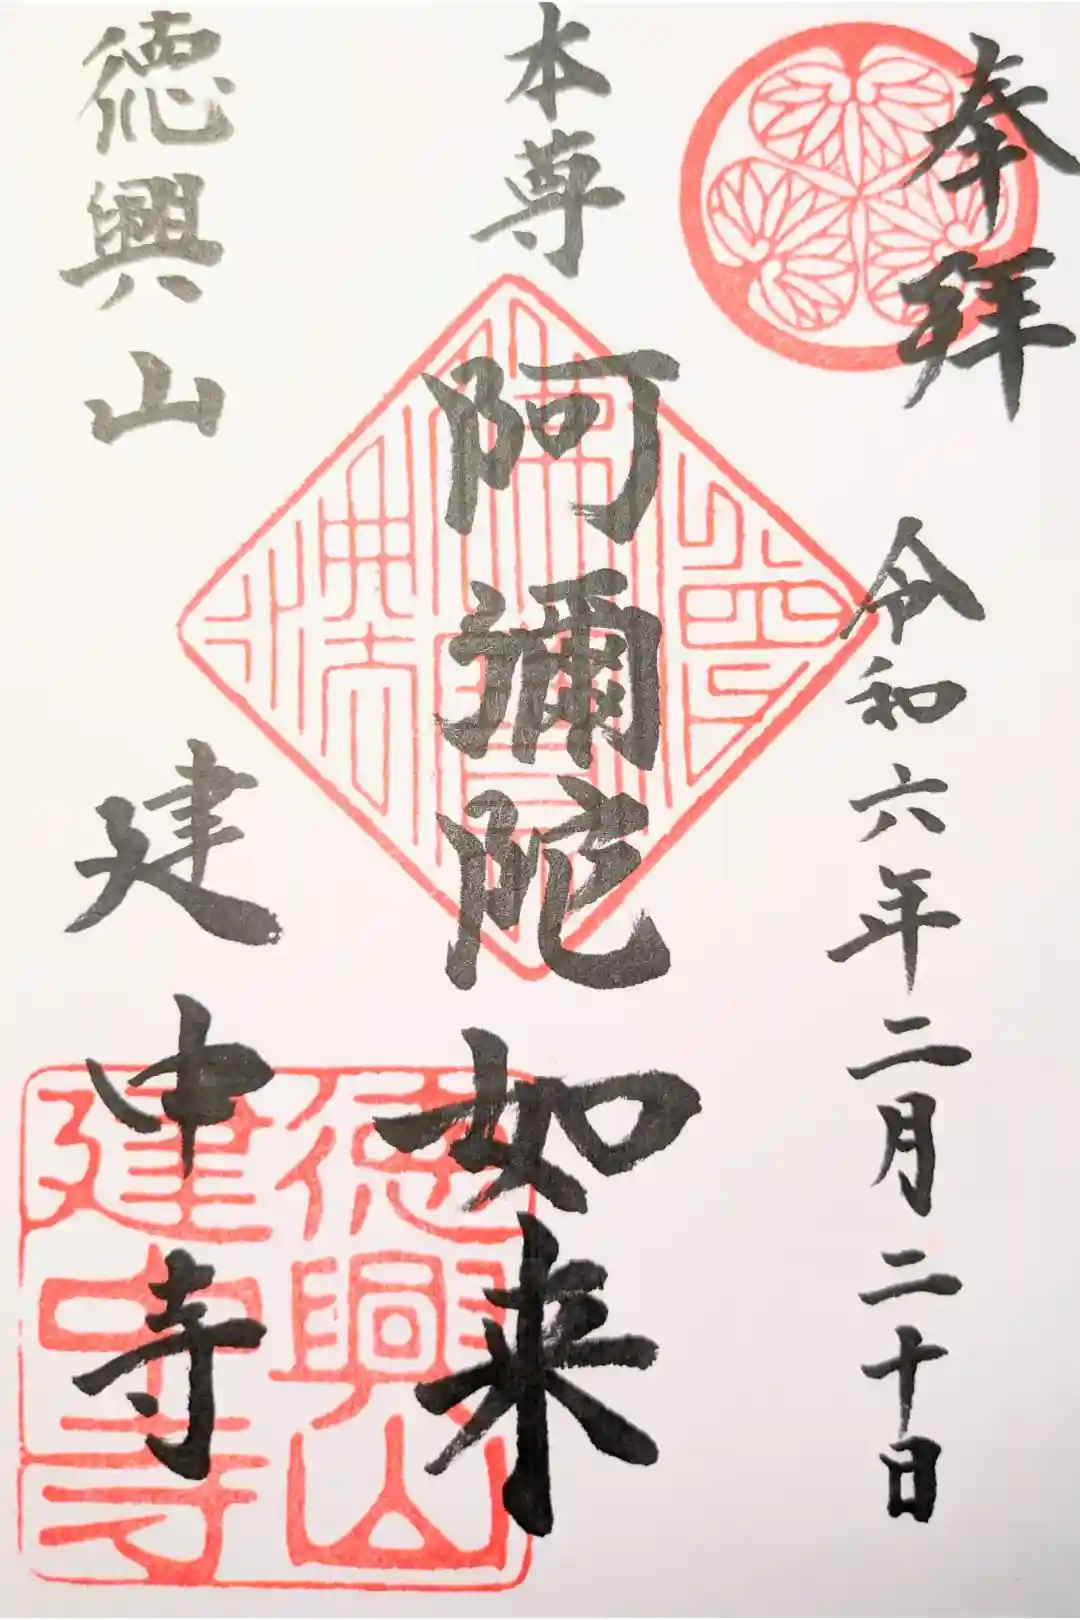 奉拝
令和六年二月二十日
本尊
阿彌陀如来
徳興山
建中寺
徳興山
建中寺